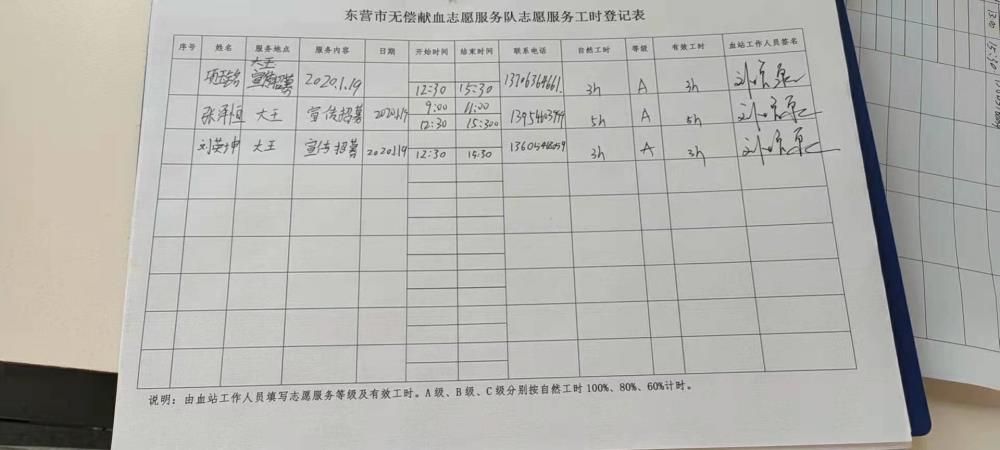 东营市无偿献血志愿服务队志愿服务工时登记表
序号 姓名 服务地点 服务内容 日期 开始时间 结束时间 联系电话 自然工时 等级 有效工时 血站工作人员签名
大王 宣传招募 2020.1.19 12:30 15:30 3h A 3h
张泽恒 大王 宣传招募 2020.1.19 9:00 11:00 5h A 5h
12:30 15:30
刘英坤 大王 宣传招募 2020.1.19 12:30 15:30 3h A 3h
说明：由血站工作人员填写志愿服务等级及有效工时。A级、B级、C级分别按自然工时100%、80%、60%计时。